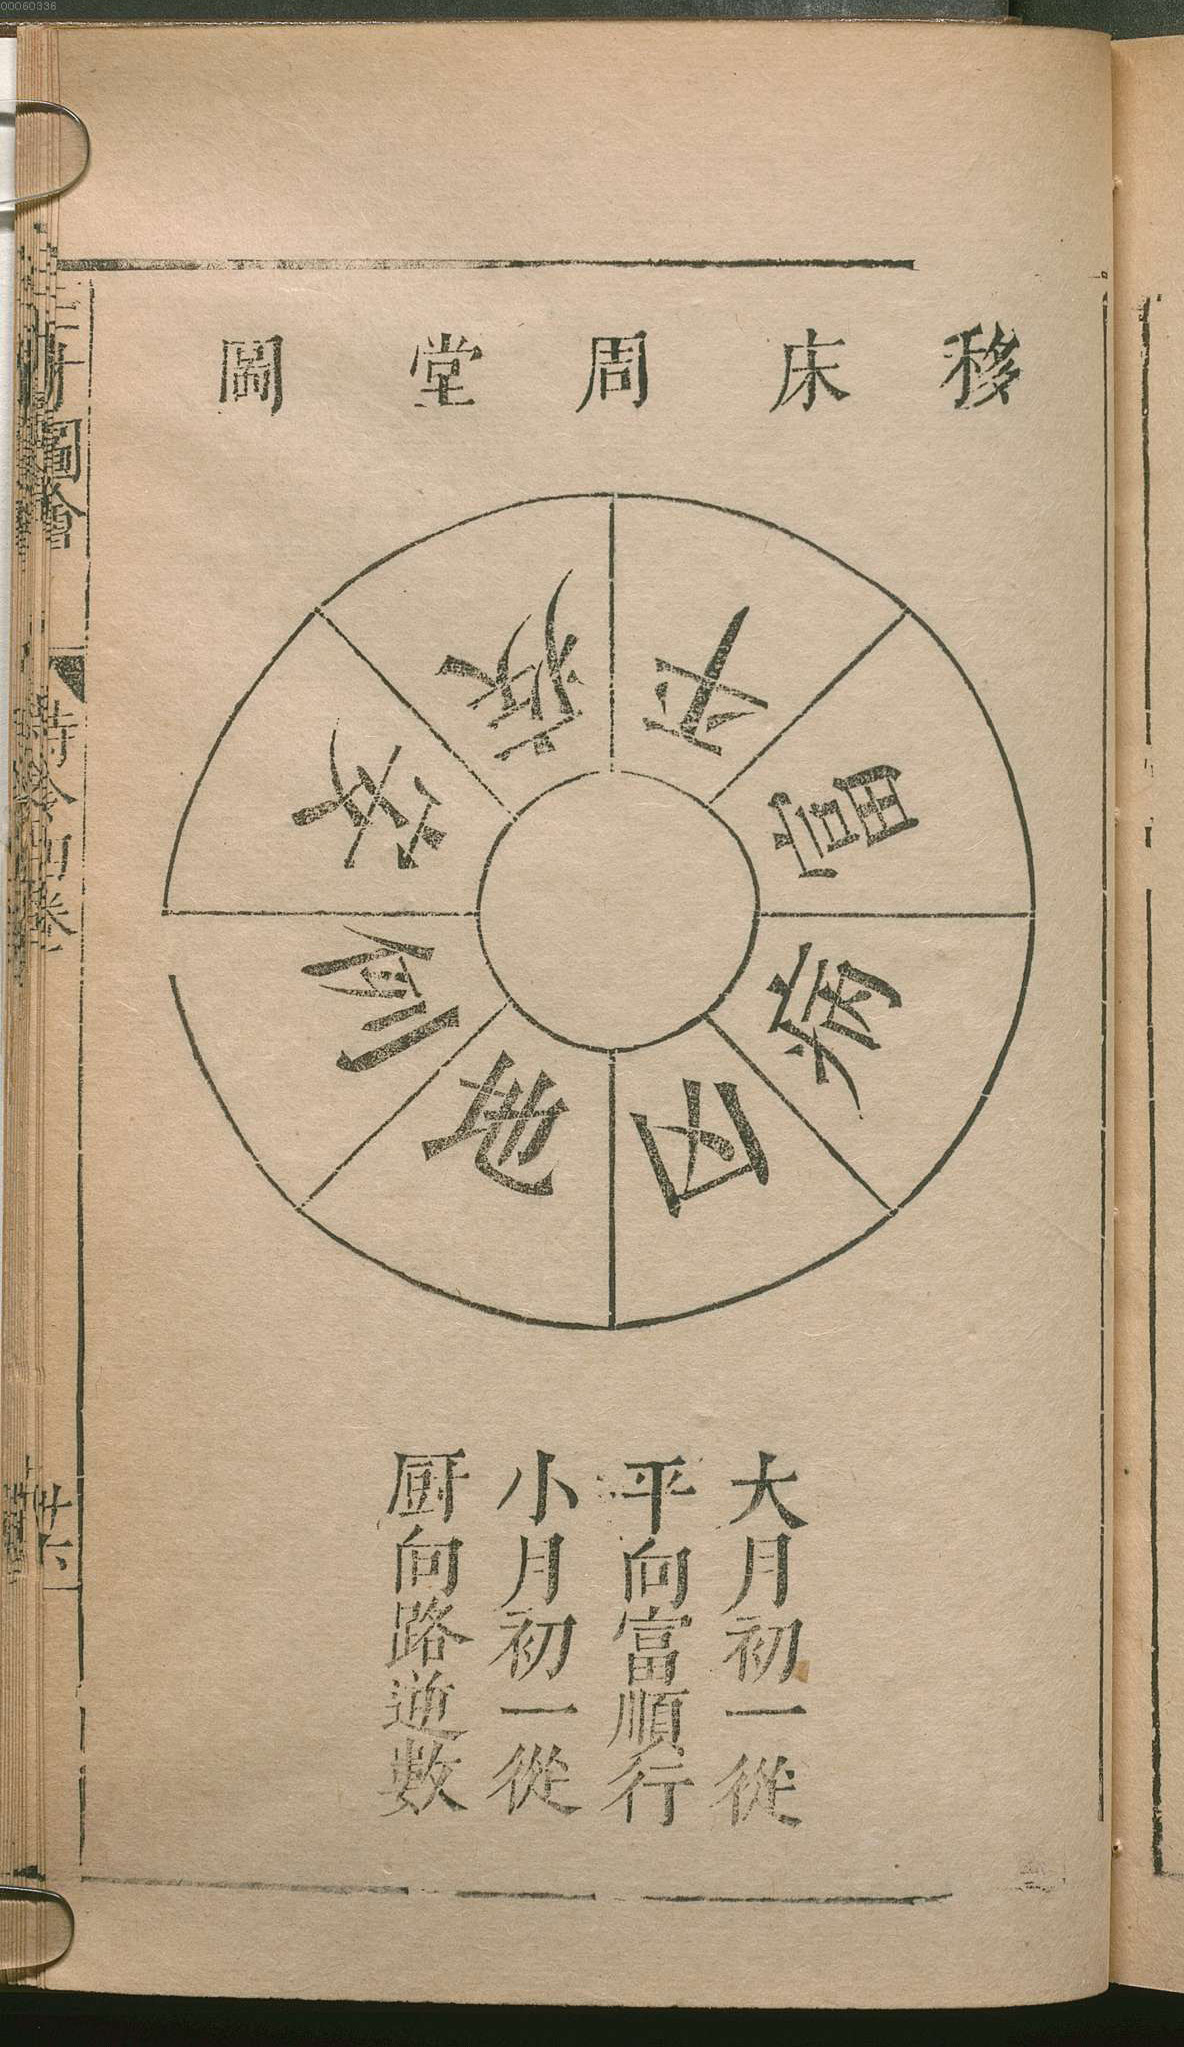 移床周堂圖
平
富
病
凶
地
安
大月初一從
平向富順行
小月初一從
厨向路逆數
三才圖會
時令四卷
廿六
00060336